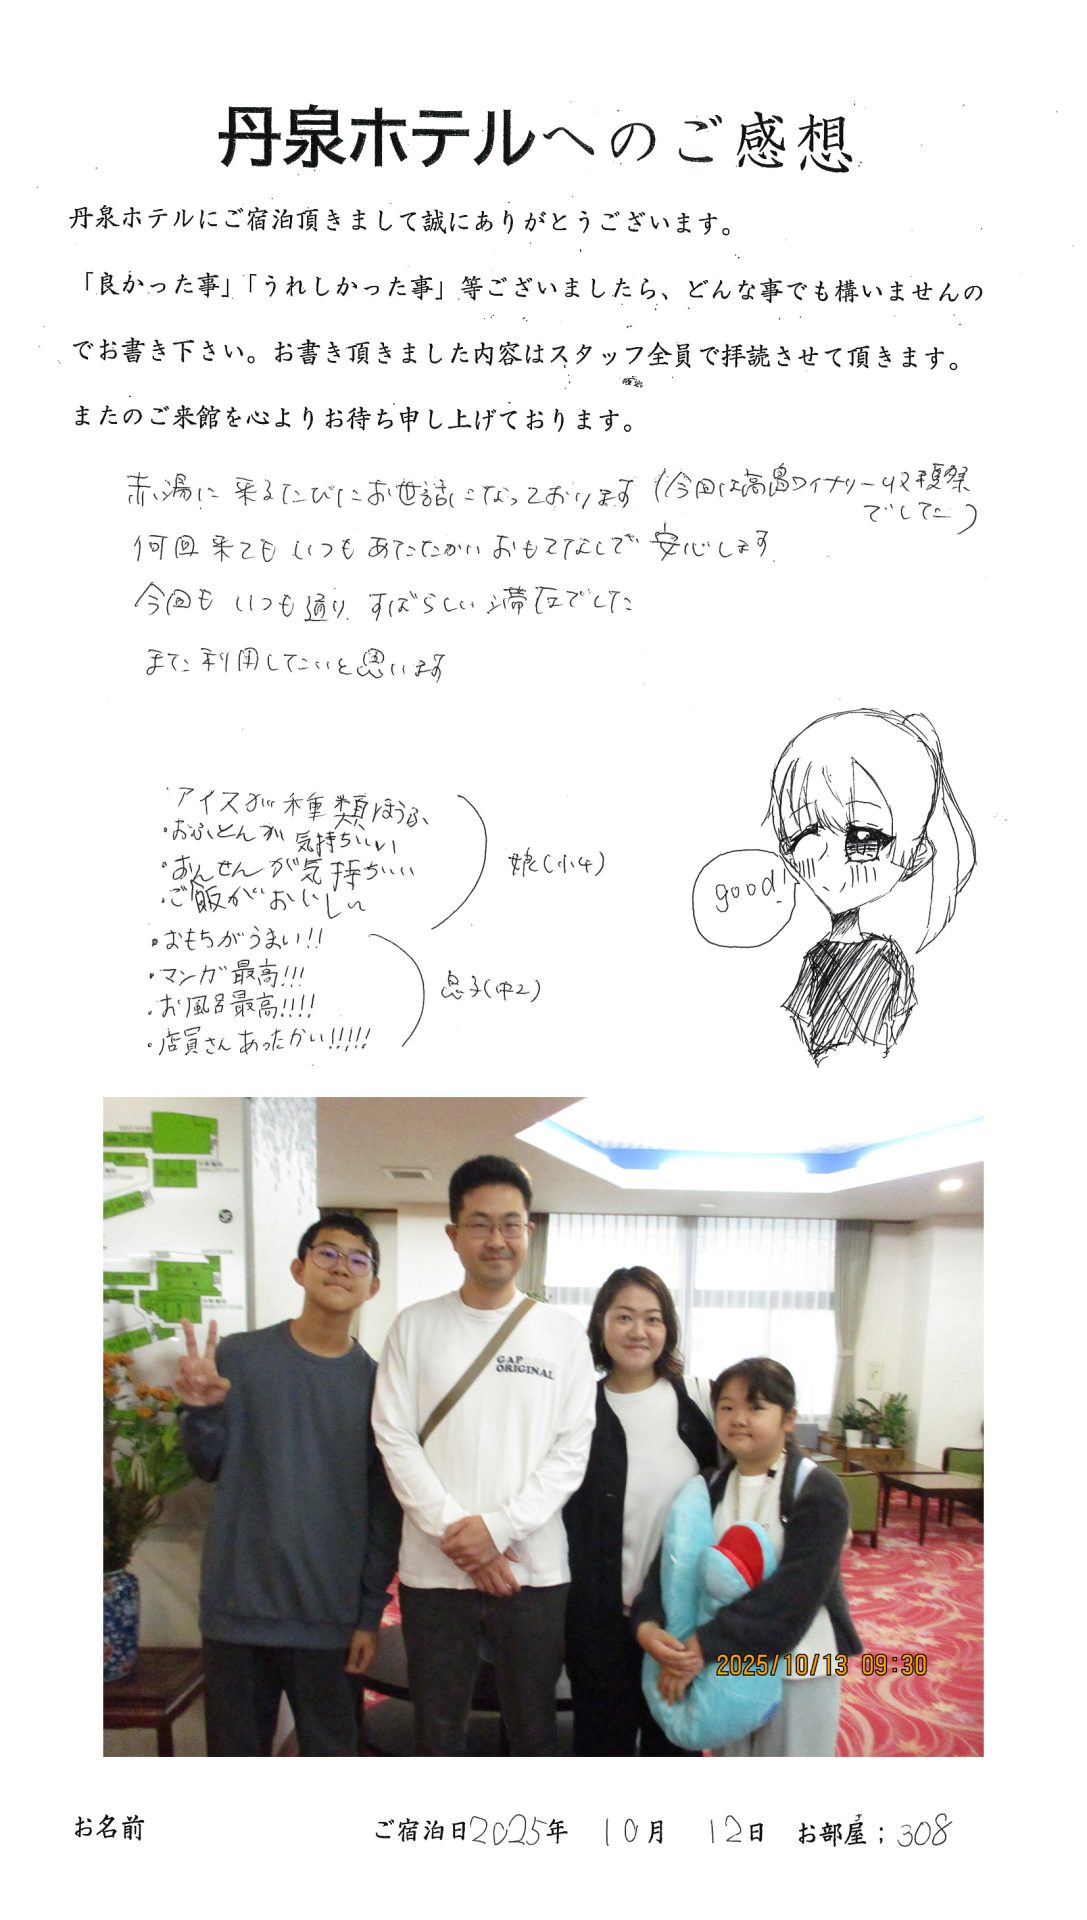 丹泉ホテルへのご感想
丹泉ホテルにご宿泊頂きまして誠にありがとうございます。
「良かった事」「うれしかった事」等ございましたら、どんな事でも構いませんの
でお書き下さい。お書き頂きました内容はスタッフ全員で拝読させて頂きます。
またのご来館を心よりお待ち申し上げております。
赤湯に来るたびにお世話になっております(今回は高畠ワイナリー収穫祭
でした)
何回来てもいつもあたたかいおもてなしで安心します
今回もいつも通りすばらしい滞在でした
また利用したいと思います
・アイスが種類ほうふ
・おふとんが気持ちいい
・おんせんが気持ちいい
・ご飯がおいしい
娘(小4)
・おもちがうまい!!
・マンガ最高!!!
・お風呂最高!!!!
・店員さんあったかい!!!!!
息子(中2)
good!
GAP
ORIGINAL
2025/10/13 09:30
お名前 ご宿泊日2025年 10月 12日 お部屋；308